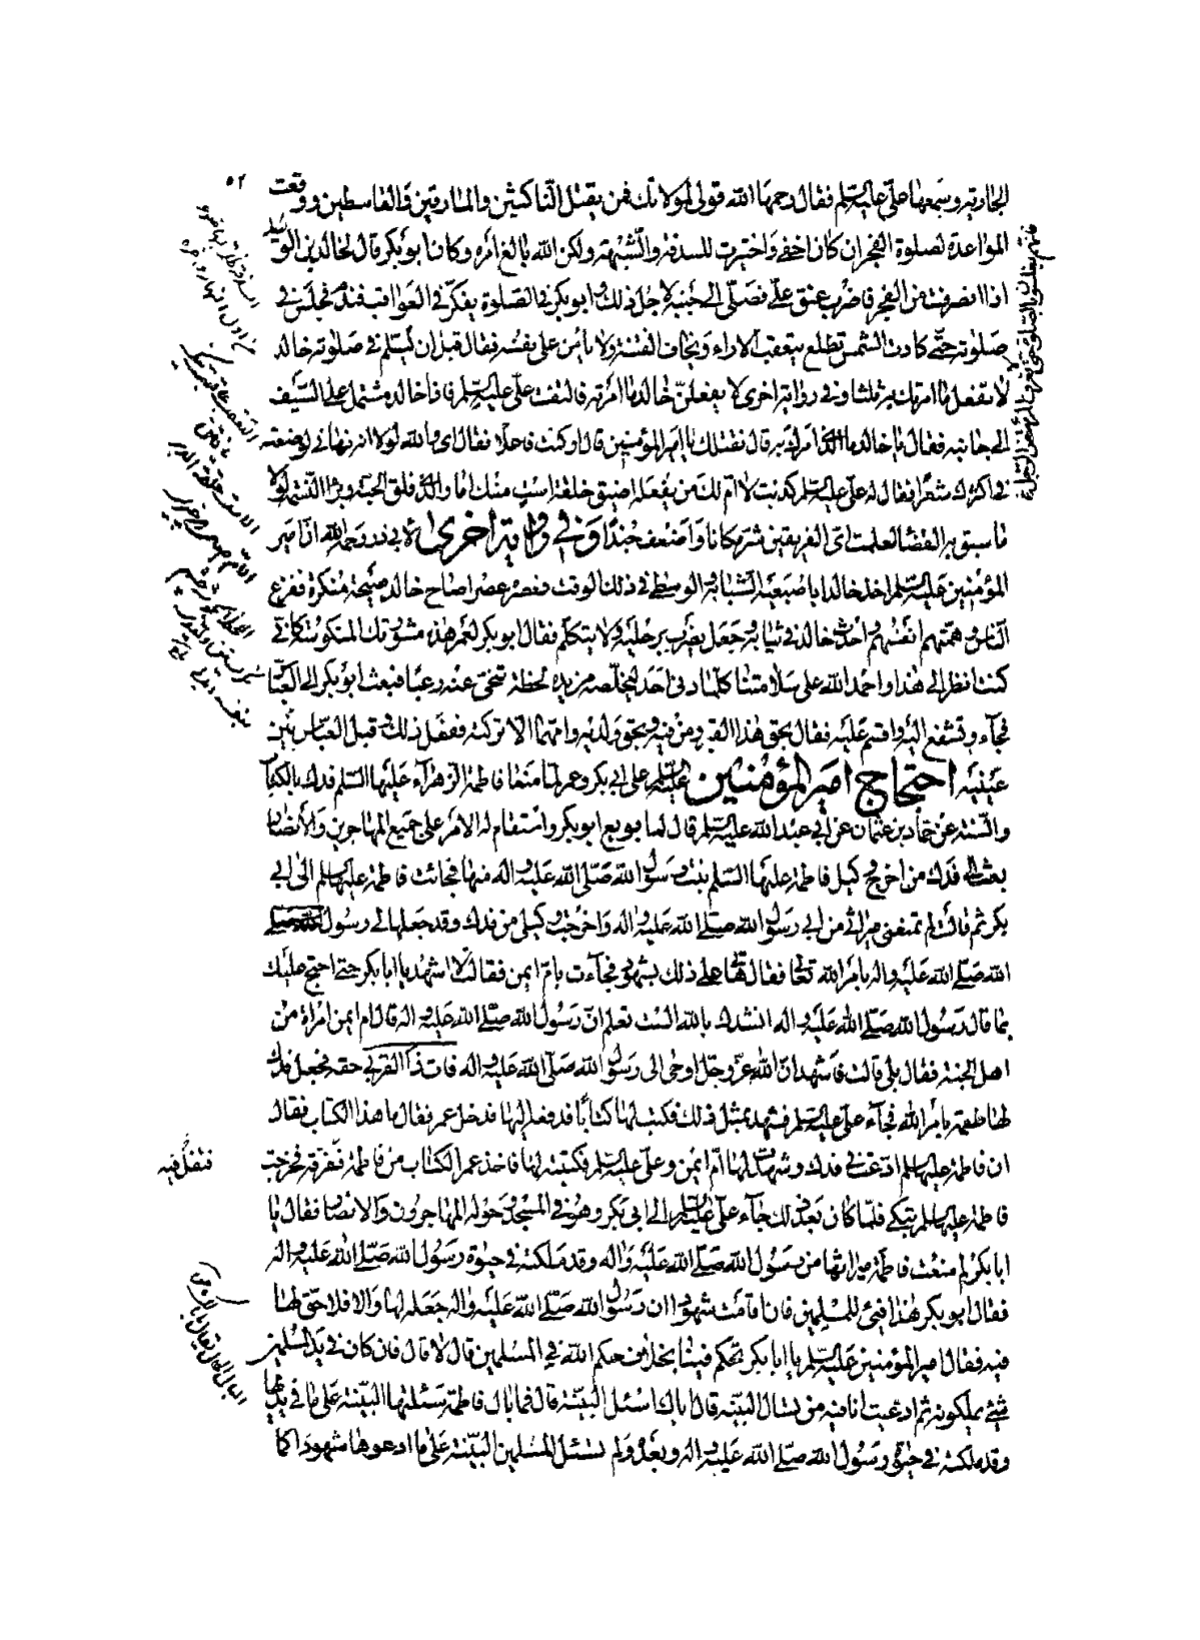 ٥٢
الجارية وسمعها علي عليه السلم فقال رحمها الله قولي لمولاتك فمن يقتل الناكثين والمارقين والقاسطين ووقعت
المواعدة لصلوة الفجر ان كان اخفى واختيرت للسدفة والشبهة ولكن الله بالغ امره وكان ابوبكر قال لخالد بن الوليد
اذا انصرفت من الفجر فاضرب عنق علي فصلى الى جنبه لاجل ذلك وابوبكر في الصلوة يفكر في العواقب فندم فجلس في
صلوته حتى كادت الشمس تطلع يتعقب الاراء ويخاف الفتنة ولا يأمن على نفسه فقال قبل ان يسلم في صلوته خالد
لا تفعل ما امرتك به ثلثا وفي رواية اخرى لا يفعلن خالد ما امرته فالتفت علي عليه السلم فاذا خالد مشتمل على السيف
الى جانبه فقال يا خالد ما الذي امرك به قال نقتلك يا امير المؤمنين قال او كنت فاعلا فقال اى والله لولا انه نهاني لوضعته
في اكثرك شعرا فقال له علي عليه السلم كذبت لا ام لك من يفعله اضيق حلقة است منك اما والذي فلق الحبة وبرأ النسمة لولا
ما سبق به القضا لعلمت اى الفريقين شر مكانا واضعف جندا وفي رواية اخرى لابي ذر رحمه الله ان امير
المؤمنين عليه السلم اخذ خالدا باصبعيه السبابة والوسطى في ذلك الوقت فعصره عصرا صاح خالد صيحة منكرة ففزع
الناس وهمتهم انفسهم واحدث خالد في ثيابه وجعل يضرب برجليه ولا يتكلم فقال ابوبكر لعمر هذه مشورتك المنكوسة كاني
كنت انظر الى هذا واحمد الله على سلامتنا كلما دنى احد ليخلصه من يده لحظة تنحى عنه رعبا فبعث ابوبكر الى العباس
فجآء وتشفع اليه واقسم عليه فقال بحق هذا القبر ومن فيه وبحق ولديه وامهما الا تركته ففعل ذلك وقبل العباس بين
عينيه احتجاج امير المؤمنين عليه السلم على ابي بكر وعمر لما منعا فاطمة الزهراء عليها السلم فدك بالكتاب
والسنة عن حماد بن عثمان عن ابي عبد الله عليه السلم قال لما بويع ابوبكر واستقام له الامر على جميع المهاجرين والانصار
بعث الى فدك من اخرج وكيل فاطمة عليها السلم بنت رسول الله صلى الله عليه واله منها فجائت فاطمة عليها السلم الى ابي
بكر ثم قالت لم تمنعني ميراثي من ابي رسول الله صلى الله عليه واله واخرجت وكيلي من فدك وقد جعلها لي رسول
الله صلى الله عليه واله بامر الله تعالى فقال هاتي على ذلك بشهود فجآءت بام ايمن فقالت لا اشهد يا ابا بكر حتى احتج عليك
بما قال رسول الله صلى الله عليه واله انشدك بالله الست تعلم ان رسول الله صلى الله عليه واله قال ام ايمن امرأة من
اهل الجنة فقال بلى قالت فاشهد ان الله عز وجل اوحى الى رسول الله صلى الله عليه واله فات ذا القربى حقه فجعل فدك
لها طعمة بامر الله فجآء علي عليه السلم فشهد بمثل ذلك فكتب لها كتابا ودفعه اليها فدخل عمر فقال ما هذا الكتاب فقال
ان فاطمة عليها السلم ادعت في فدك وشهدت لها ام ايمن وعلي عليه السلم فكتبته لها فاخذ عمر الكتاب من فاطمة فمزقه فخرجت
فتفل فيه
فاطمة عليها السلم تبكي فلما كان بعد ذلك جآء علي عليه السلم الى ابي بكر وهو في المسجد وحوله المهاجرون والانصار فقال يا
ابا بكر لم منعت فاطمة ميراثها من رسول الله صلى الله عليه واله وقد ملكته في حيوة رسول الله صلى الله عليه واله
فقال ابوبكر هذا فيئ للمسلمين فان اقامت شهودا ان رسول الله صلى الله عليه واله جعله لها والا فلا حق لها
فيه فقال امير المؤمنين عليه السلم يا ابا بكر تحكم فينا بخلاف حكم الله في المسلمين قال لا قال فان كان في يد المسلمين
شيئ يملكونه ثم ادعيت انا فيه من تسال البينة قال اياك اسئل البينة قال فما بال فاطمة سئلتها البينة على ما في يديها
وقد ملكته في حيوة رسول الله صلى الله عليه واله وبعده ولم تسئل المسلمين البينة على ما ادعوها شهودا كما